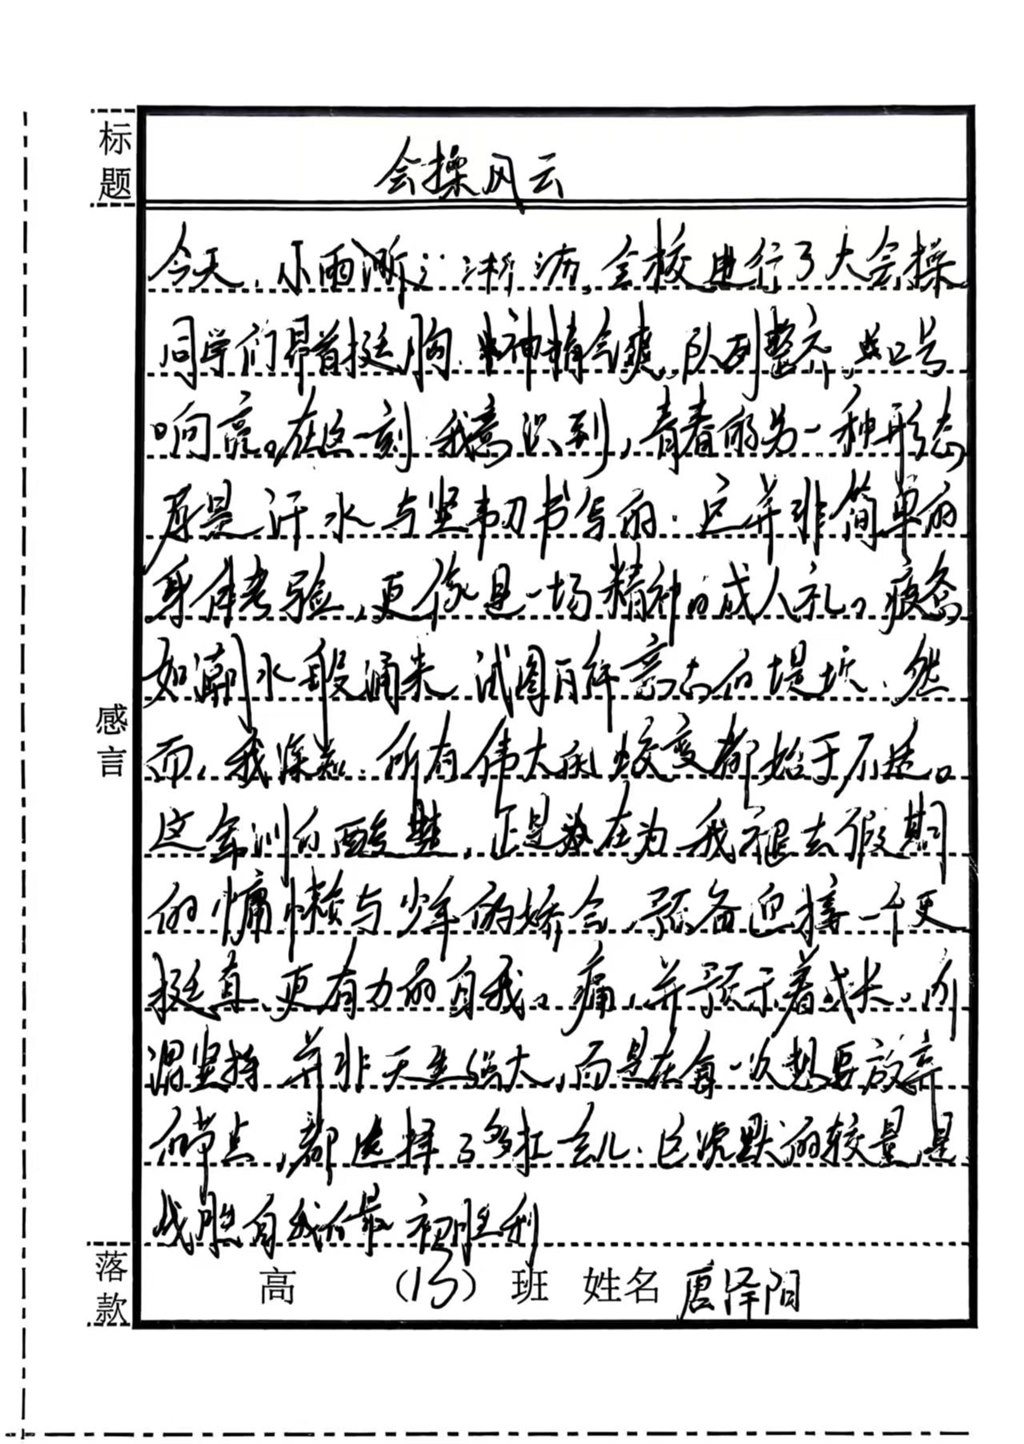 标题
会操风云
今天,小雨淅淅沥沥,全校进行了大会操
同学们昂首挺胸,精神爽,队列整齐,口号
响亮。在这一刻,我意识到,青春的另一种形态
是汗水与坚韧书写的.这并非简单的
身体考验,更像是一场精神的成人礼。疲惫
如潮水般涌来,试图瓦解意志的堤坝.然
而,我深知,所有伟大的蜕变都始于不适。
这军训的酸楚,正是在为我褪去假期
的慵懒与少年的娇气,预备迎接一个更
挺直,更有力的自我。痛,并预示着成长。所
谓坚持,并非天生强大,而是在每一次想要放弃
的节点,都选择了多扛一会儿.这沉默的较量,是
战胜自我的最初胜利
感言
落款
高 (13) 班 姓名 唐泽阳